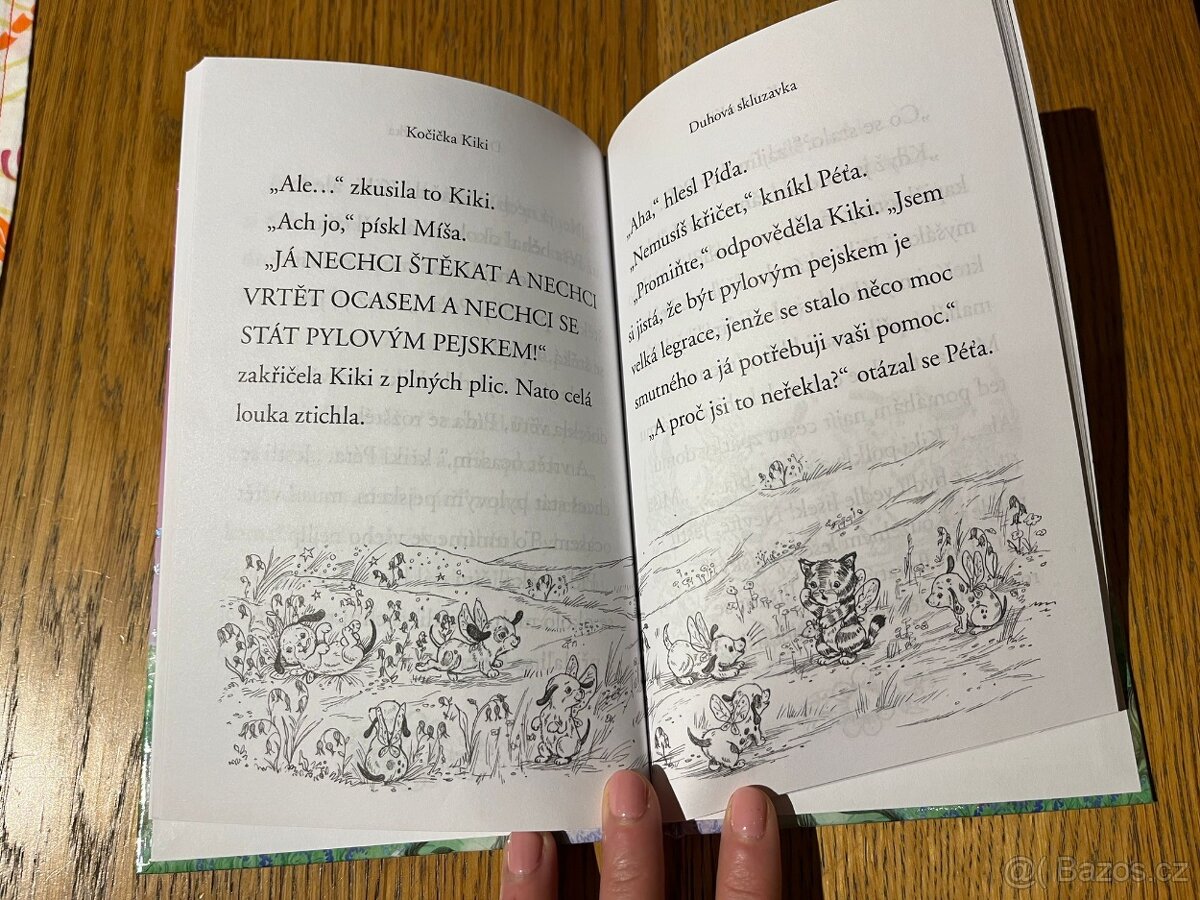 Kočička Kiki
„Ale…“ zkusila to Kiki.
„Ach jo,“ pískl Míša.
„JÁ NECHCI ŠTĚKAT A NECHCI
VRTĚT OCASEM A NECHCI SE
STÁT PYLOVÝM PEJSKEM!“
zakřičela Kiki z plných plic. Nato celá
louka ztichla.
Duhová skluzavka
„Aha,“ hlesl Píďa.
„Nemusíš křičet,“ kníkl Péťa.
„Promiňte,“ odpověděla Kiki. „Jsem
si jistá, že být pylovým pejskem je
velká legrace, jenže se stalo něco moc
smutného a já potřebuji vaši pomoc.“
„A proč jsi to neřekla?“ otázal se Péťa.
Bazos.cz